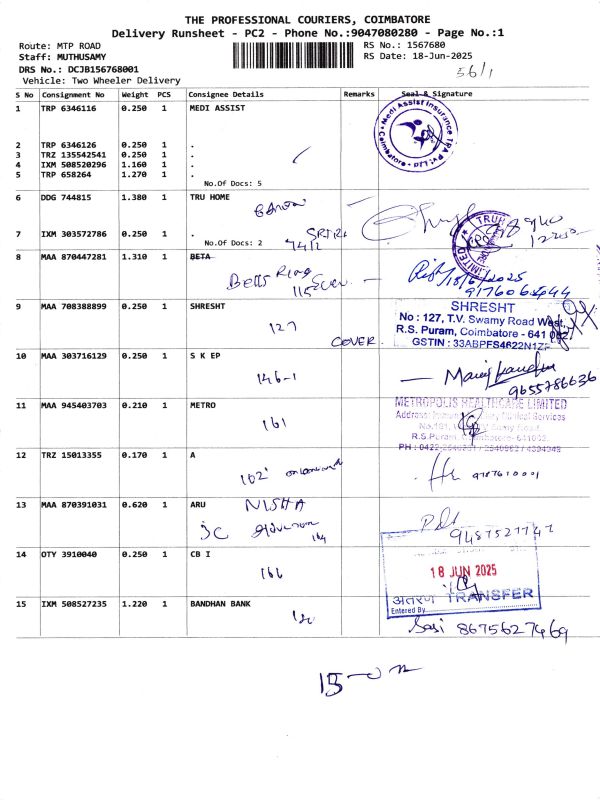 THE PROFESSIONAL COURIERS, COIMBATORE
Delivery Runsheet - PC2 - Phone No.:9047080280 - Page No.:1
Route: MTP ROAD
RS No.: 1567680
Staff: MUTHUSAMY
RS Date: 18-Jun-2025
DRS No.: DCJB156768001
56/1
Vehicle: Two Wheeler Delivery
S No Consignment No Weight PCS Consignee Details Remarks Seal & Signature
1 TRP 6346116 0.250 1 MEDI ASSIST
Medi Assist Insurance TPA Pvt. Ltd
Coimbatore
2 TRP 6346126 0.250 1 .
3 TRZ 135542541 0.250 1 .
4 IXM 508520296 1.160 1 .
5 TRP 658264 1.270 1 .
No.Of Docs: 5
6 DDG 744815 1.380 1 TRU HOME
7 IXM 303572786 0.250 1 .
No.Of Docs: 2
LIMITED
8 MAA 870447281 1.310 1 BETA
9 MAA 708388899 0.250 1 SHRESHT
127
COVER
SHRESHT
No : 127, T.V. Swamy Road West,
R.S. Puram, Coimbatore - 641 002.
GSTIN : 33ABPFS4622N1ZF
10 MAA 303716129 0.250 1 S K EP
146-1
9655786636
11 MAA 945403703 0.210 1 METRO
161
METROPOLIS HEALTHCARE LIMITED
12 TRZ 15013355 0.170 1 A
102
13 MAA 870391031 0.620 1 ARU
NISHA
JC
164
9487527747
14 OTY 3910040 0.250 1 CB I
166
18 JUN 2025
अंतरण TRANSFER
Entered By
15 IXM 508527235 1.220 1 BANDHAN BANK
120
Sasi 8675627469